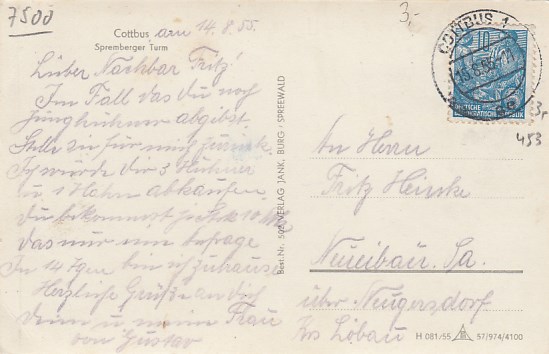 7500
3,-
Cottbus am 14.8.55.
Spremberger Turm
Lieber Nachbar Fritz!
Im Fall das du noch
Junghühner abgibst.
Stelle sie für mich zurück.
Ich würde dir 3 Hühner
u 1 Hahn abkaufen
du bekommst je Stck 10 Mk
das nur um
In 14 Tgen bin ich zuhause
Herzliche Grüße an dich
deine u meine Frau
von Gustav
Best.Nr. VERLAG JANK, BURG - SPREEWALD
COTTBUS 1
10
DEUTSCHE
DEMOKRATISCHE REPUBLIK
453
An Herrn
Fritz Heinke
Neueibau. Sa.
über Neugersdorf
Krs Löbau
H 081/55 57/974/4100